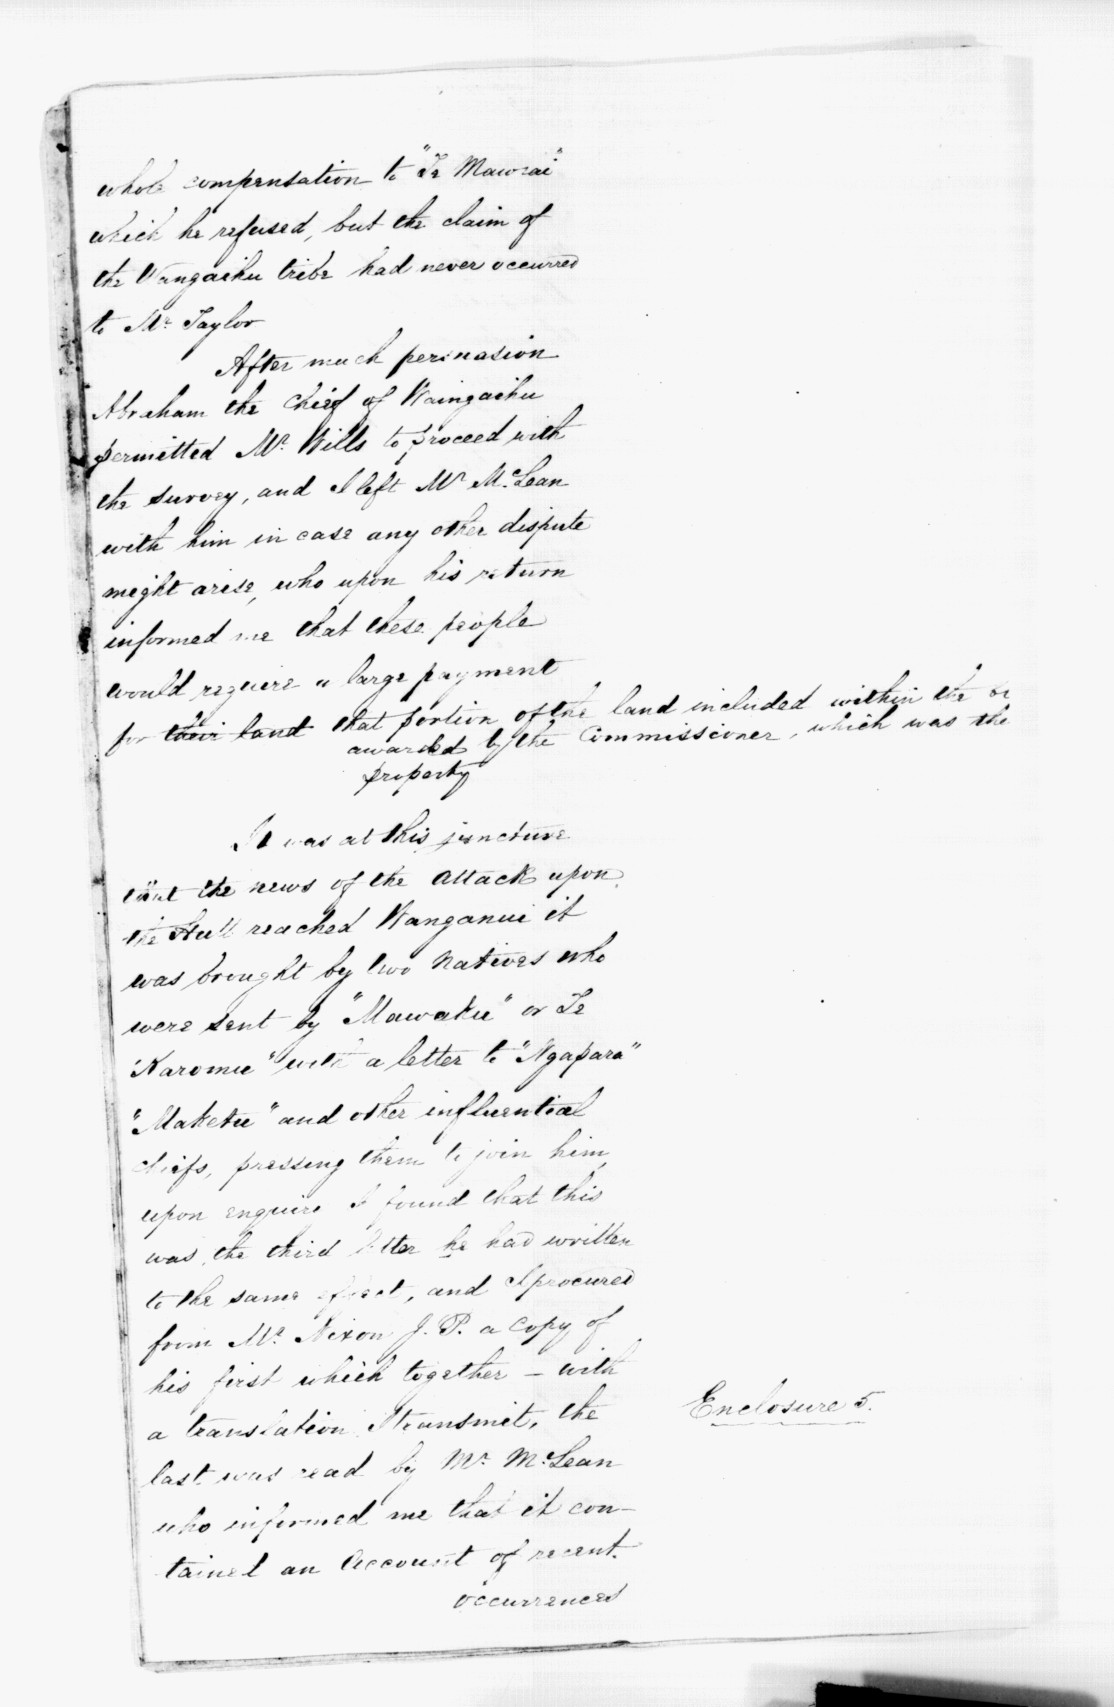 whole compensation to "Te Mawrai"
which he refused, but the claim of
the Wangaihu tribe had never occurred
to Mr. Taylor
After much persuasion
Abraham the chief of Waingaihu
permitted Mr. Wills to proceed with
the survey, and I left Mr McLean
with him in case any other dispute
might arise, who upon his return
informed me that these people
would require a large payment
for their land that portion of the land included within the
awarded by the Commissioner, which was the
property
It was at this juncture
that the news of the attack upon
the Hutt reached Wanganui it
was brought by two Natives who
were sent by "Mawaku" or Te
"Karomu" with a letter to "Ngapara"
"Maketu" and other influential
chiefs, pressing them to join him,
upon enquire I found that this
was the third letter he had written
to the same effect, and I procured
from Mr. Nixon J. P. a copy of
his first which together – with
a translation I transmit, the
Enclosure 5.
last was read by Mr. McLean
who informed me that it con-
tained an account of recent
occurrences